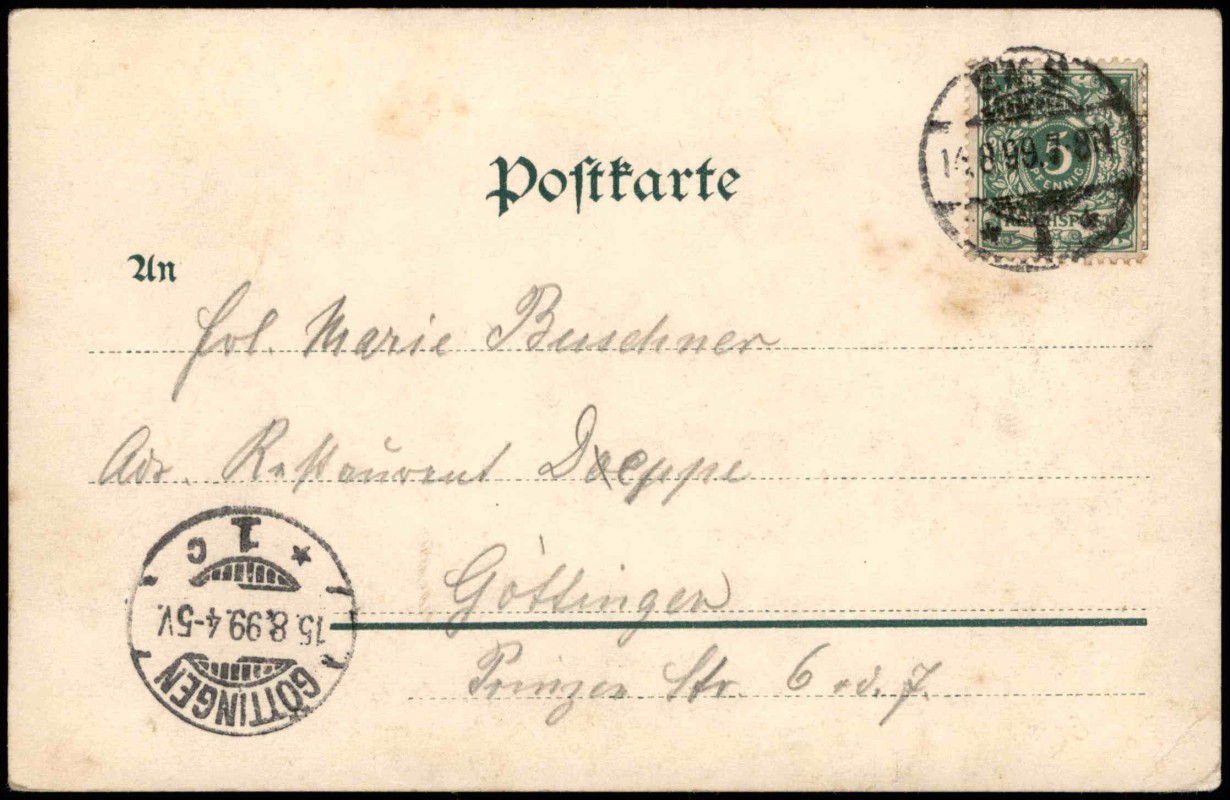 Postkarte
EMS
14.8.99.7-8N
5
PFENNIG
REICHSPOST
* 1 *
An
Frl. Marie Buschner
Adr. Restaurent Doeppe
Göttingen
Prinzen Str. 6 od. 7.
GÖTTINGEN
15.8.99.4-5V.
* 1 C